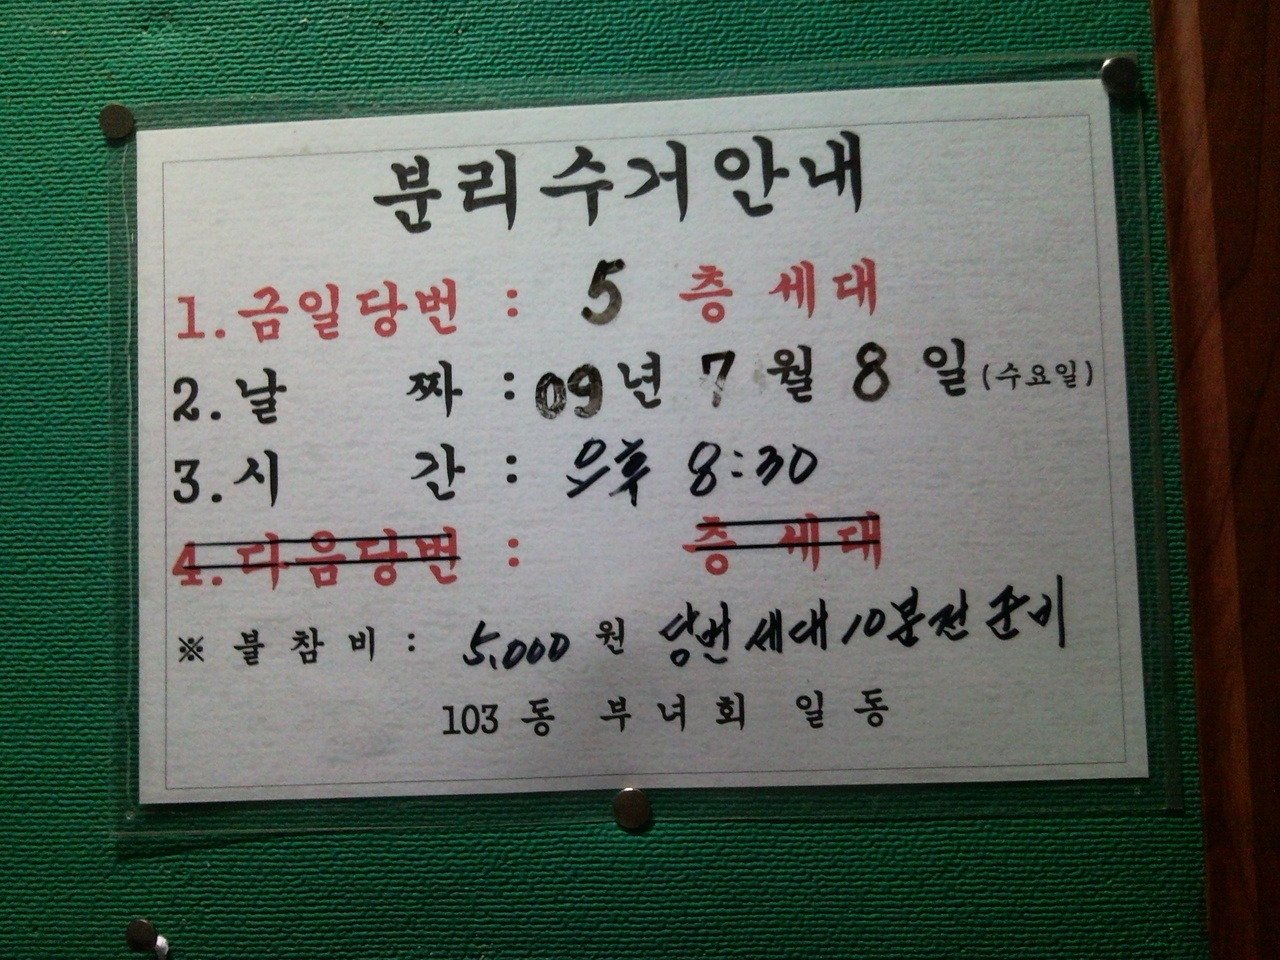 분리수거안내
1. 금일당번 : 5 층 세대
2. 날 짜 : 09년 7월 8일 (수요일)
3. 시 간 : 오후 8:30
4. 다음당번 : 층 세대
※ 불참비 : 5,000 원 당번세대 10분전 준비
103동 부녀회 일동